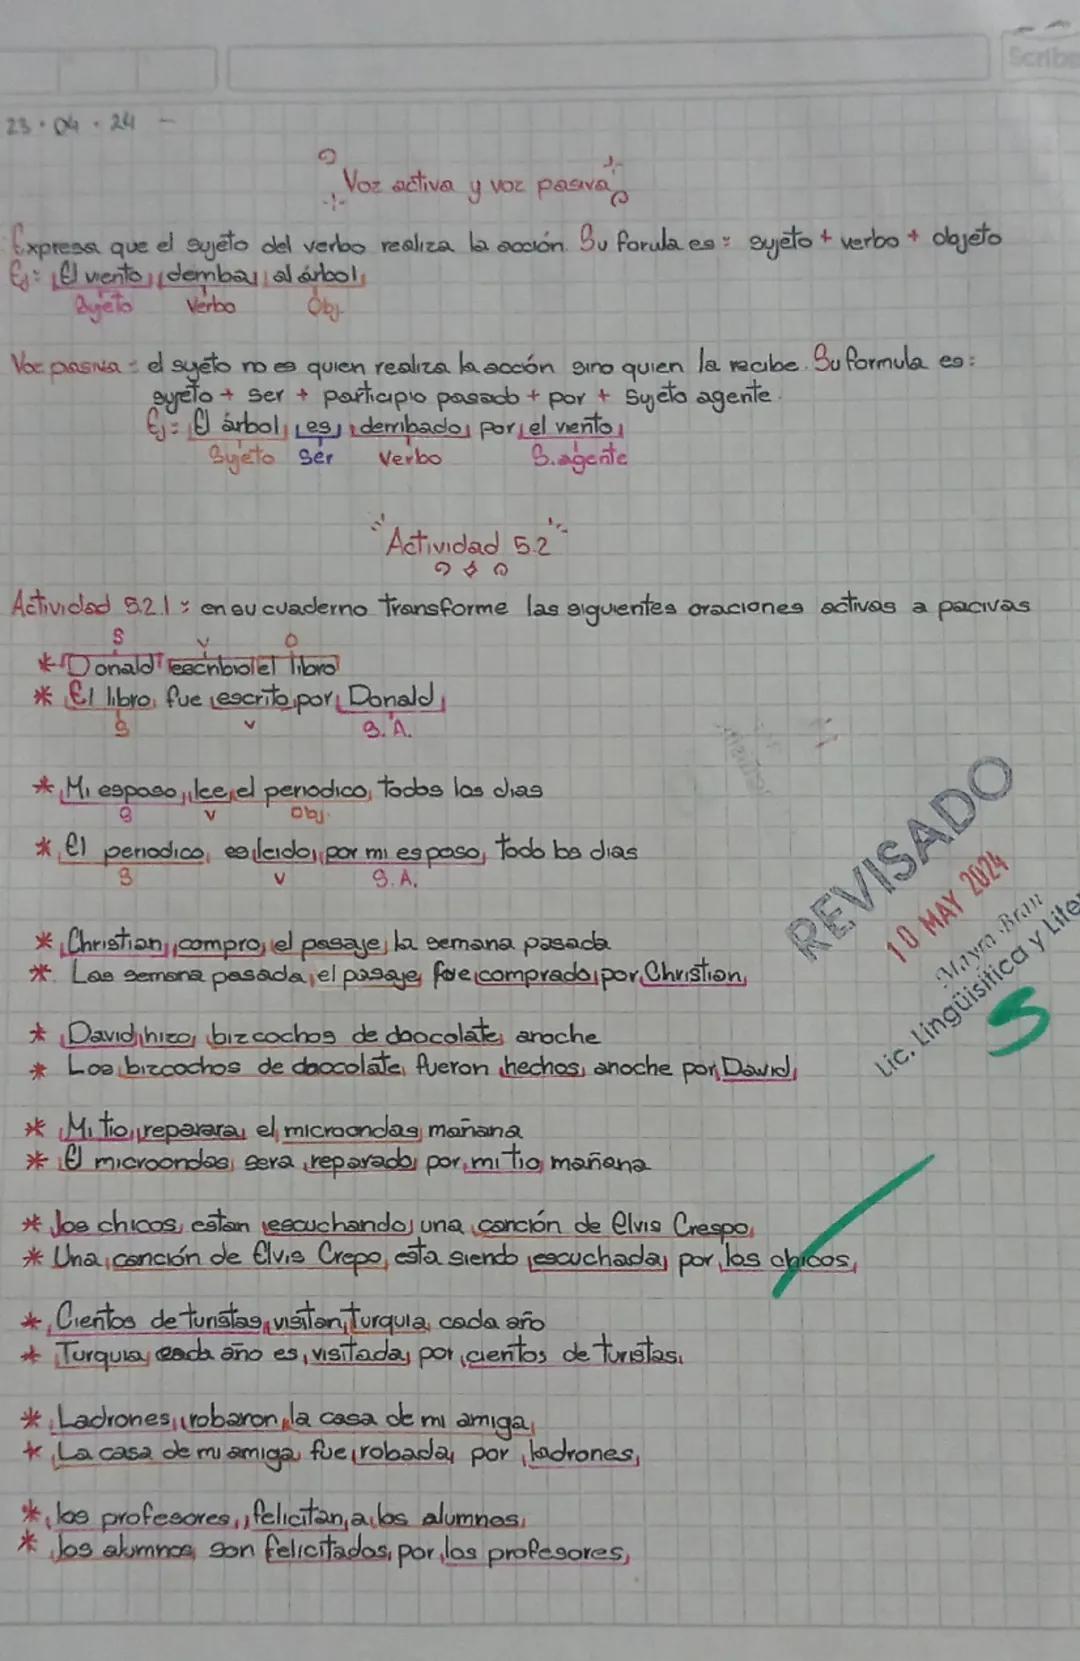 Scribe
23 · 04 · 24 -
Voz activa y voz pasiva
Expresa que el sujeto del verbo realiza la acción. Su forula es: sujeto + verbo + objeto
Ej: El viento demba al árbol
Sujeto Verbo Obj.
Voz pasiva: el sujeto no es quien realiza la acción sino quien la recibe. Su formula es:
sujeto + ser + participio pasado + por + sujeto agente.
Ej: El árbol es derribado por el viento
Sujeto Ser Verbo S. agente
"Actividad 5.2"
Actividad 5.2.1: en su cuaderno transforme las siguientes oraciones activas a pacivas
S V O
* Donald escribio el libro
* El libro fue escrito por Donald
S V S. A.
* Mi esposo lee el periodico todos los dias
S V Obj.
* El periodico es leido por mi esposo todo los dias
S V S. A.
* Christian compro el pasaje la semana pasada
* Las semana pasada el pasaje fue comprado por Christian
* David hizo bizcochos de chocolate anoche
* Los bizcochos de chocolate fueron hechos anoche por David
* Mi tio reparara el microondas mañana
* El microondas sera reparado por mi tio mañana
* los chicos estan escuchando una canción de Elvis Crespo
* Una canción de Elvis Crepo esta siendo escuchada por los chicos
* Cientos de turistas visitan turquia cada año
* Turquia cada año es visitada por cientos de turistas
* Ladrones robaron la casa de mi amiga
* La casa de mi amiga fue robada por ladrones
* los profesores felicitan a los alumnos
* los alumnos son felicitados por los profesores
REVISADO
10 MAY 2024
Mayra Bran
Lic. Lingüisitica y Liter
5